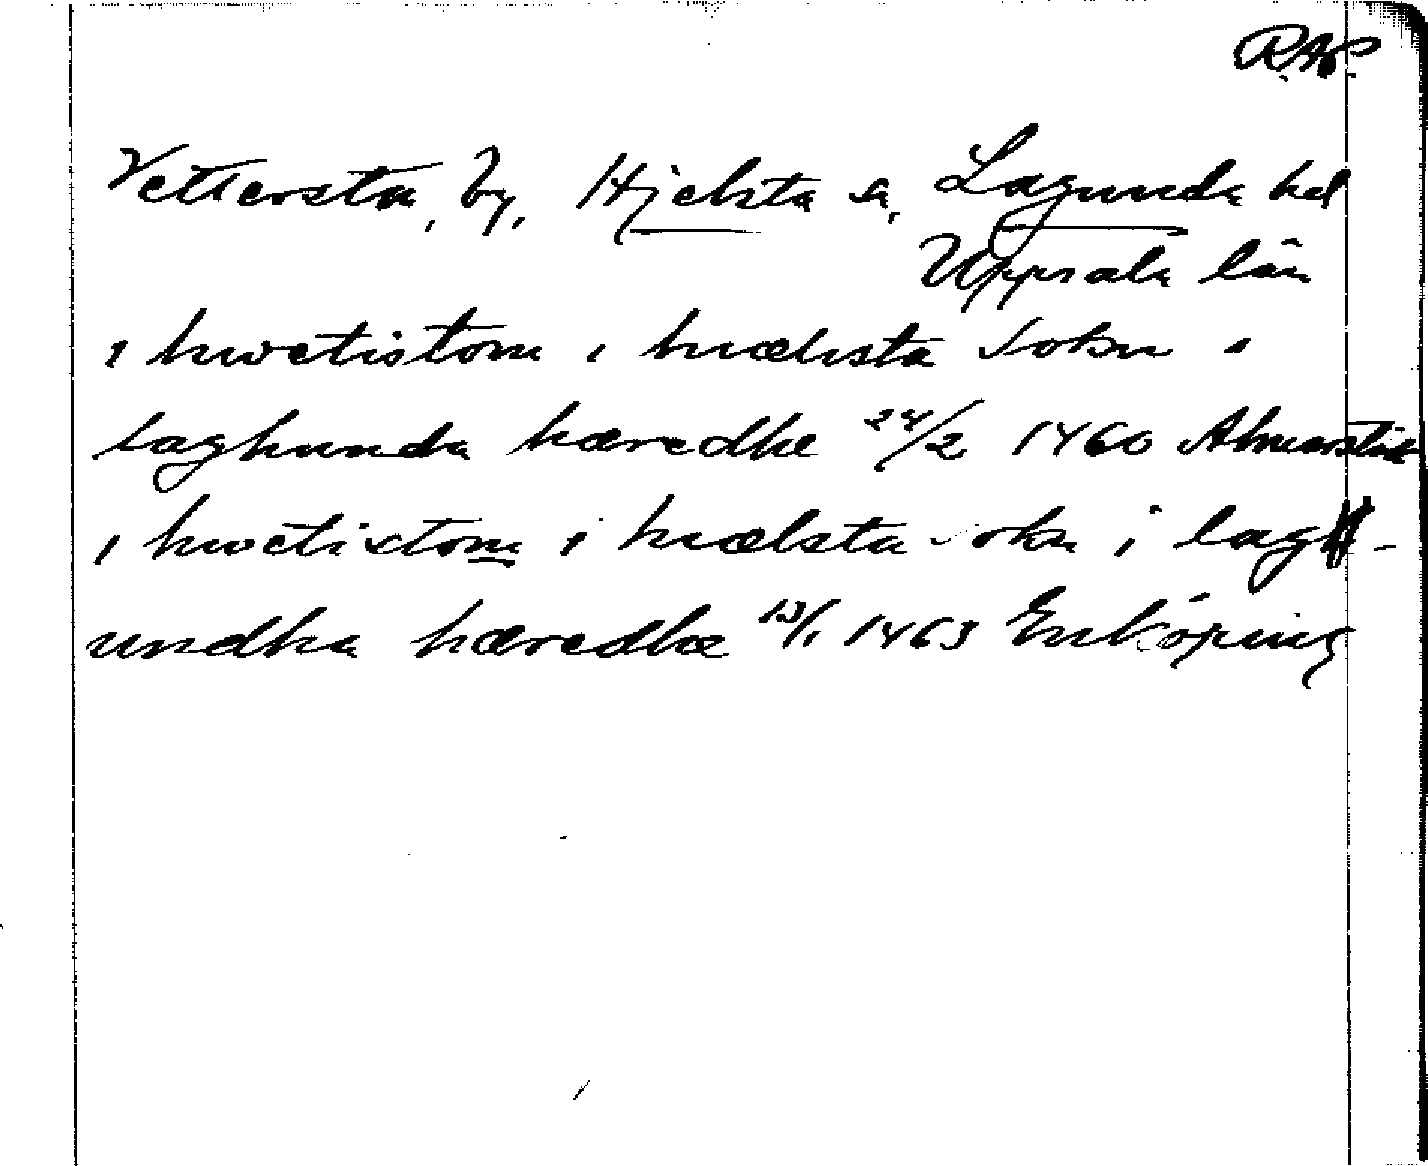 RAP.
Vettersta, by, Hjelsta sn, Lagunda hd
Uppsala län
i hwetistom i hiælista sokn i
laghunda hæredhe 24/2 1460 Almarstäk
i hwetixtom i hiælsta sokn i lagh-
undha hæredhe 13/1 1463 Enköping